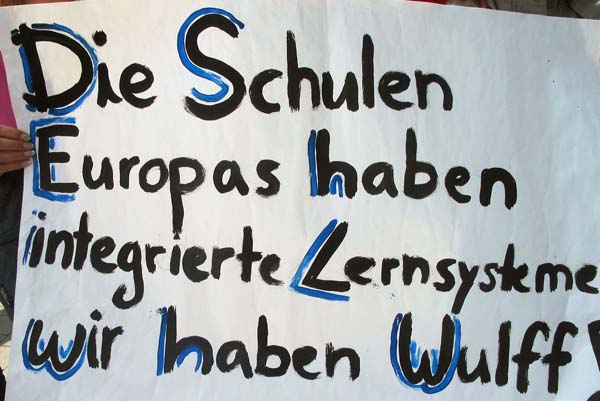 Die Schulen
Europas haben
integrierte Lernsysteme
wir haben Wulff!